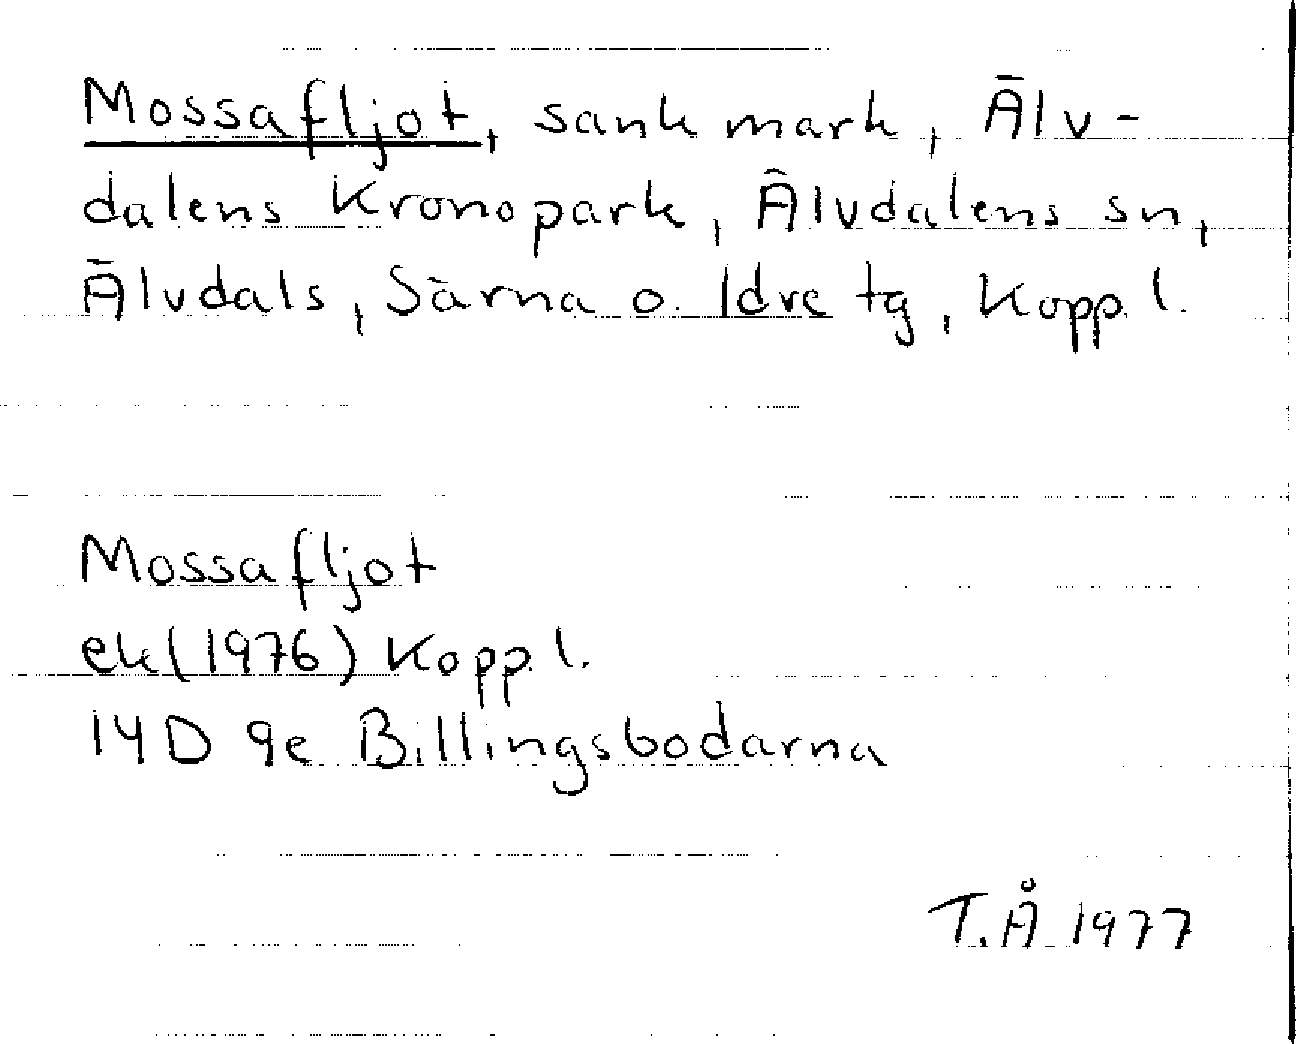 Mossafljot, sank mark, Älv-
dalens Kronopark, Älvdalens sn,
Älvdals, Särna o. Idre tg, Kopp. l.
Mossafljot
ek (1976) Kopp. l.
14D 9e Billingsbodarna
T.Å 1977